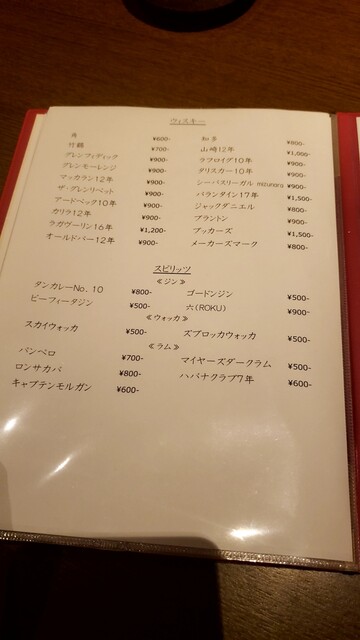 ウィスキー
角 ¥600- 知多 ¥900-
竹鶴 ¥700- 山崎12年 ¥1,000-
グレンフィディック ¥900- ラフロイグ10年 ¥900-
グレンモーレンジ ¥900- タリスカー10年 ¥900-
マッカラン12年 ¥900- シーバスリーガル mizunara ¥900-
ザ・グレンリベット ¥900- バランタイン17年 ¥1,500-
アードベック10年 ¥900- ジャックダニエル ¥800-
カリラ12年 ¥900- ブラントン ¥900-
ラガヴーリン16年 ¥1,200- ブッカーズ ¥1,500-
オールドパー12年 ¥900- メーカーズマーク ¥800-
スピリッツ
≪ジン≫
タンカレーNo. 10 ¥800- ゴードンジン ¥500-
ビーフィータジン ¥500- 六(ROKU) ¥900-
≪ウォッカ≫
スカイウォッカ ¥500- ズブロッカウォッカ ¥500-
≪ラム≫
パンペロ ¥700- マイヤーズダークラム ¥500-
ロンサカパ ¥800- ハバナクラブ7年 ¥600-
キャプテンモルガン ¥600-